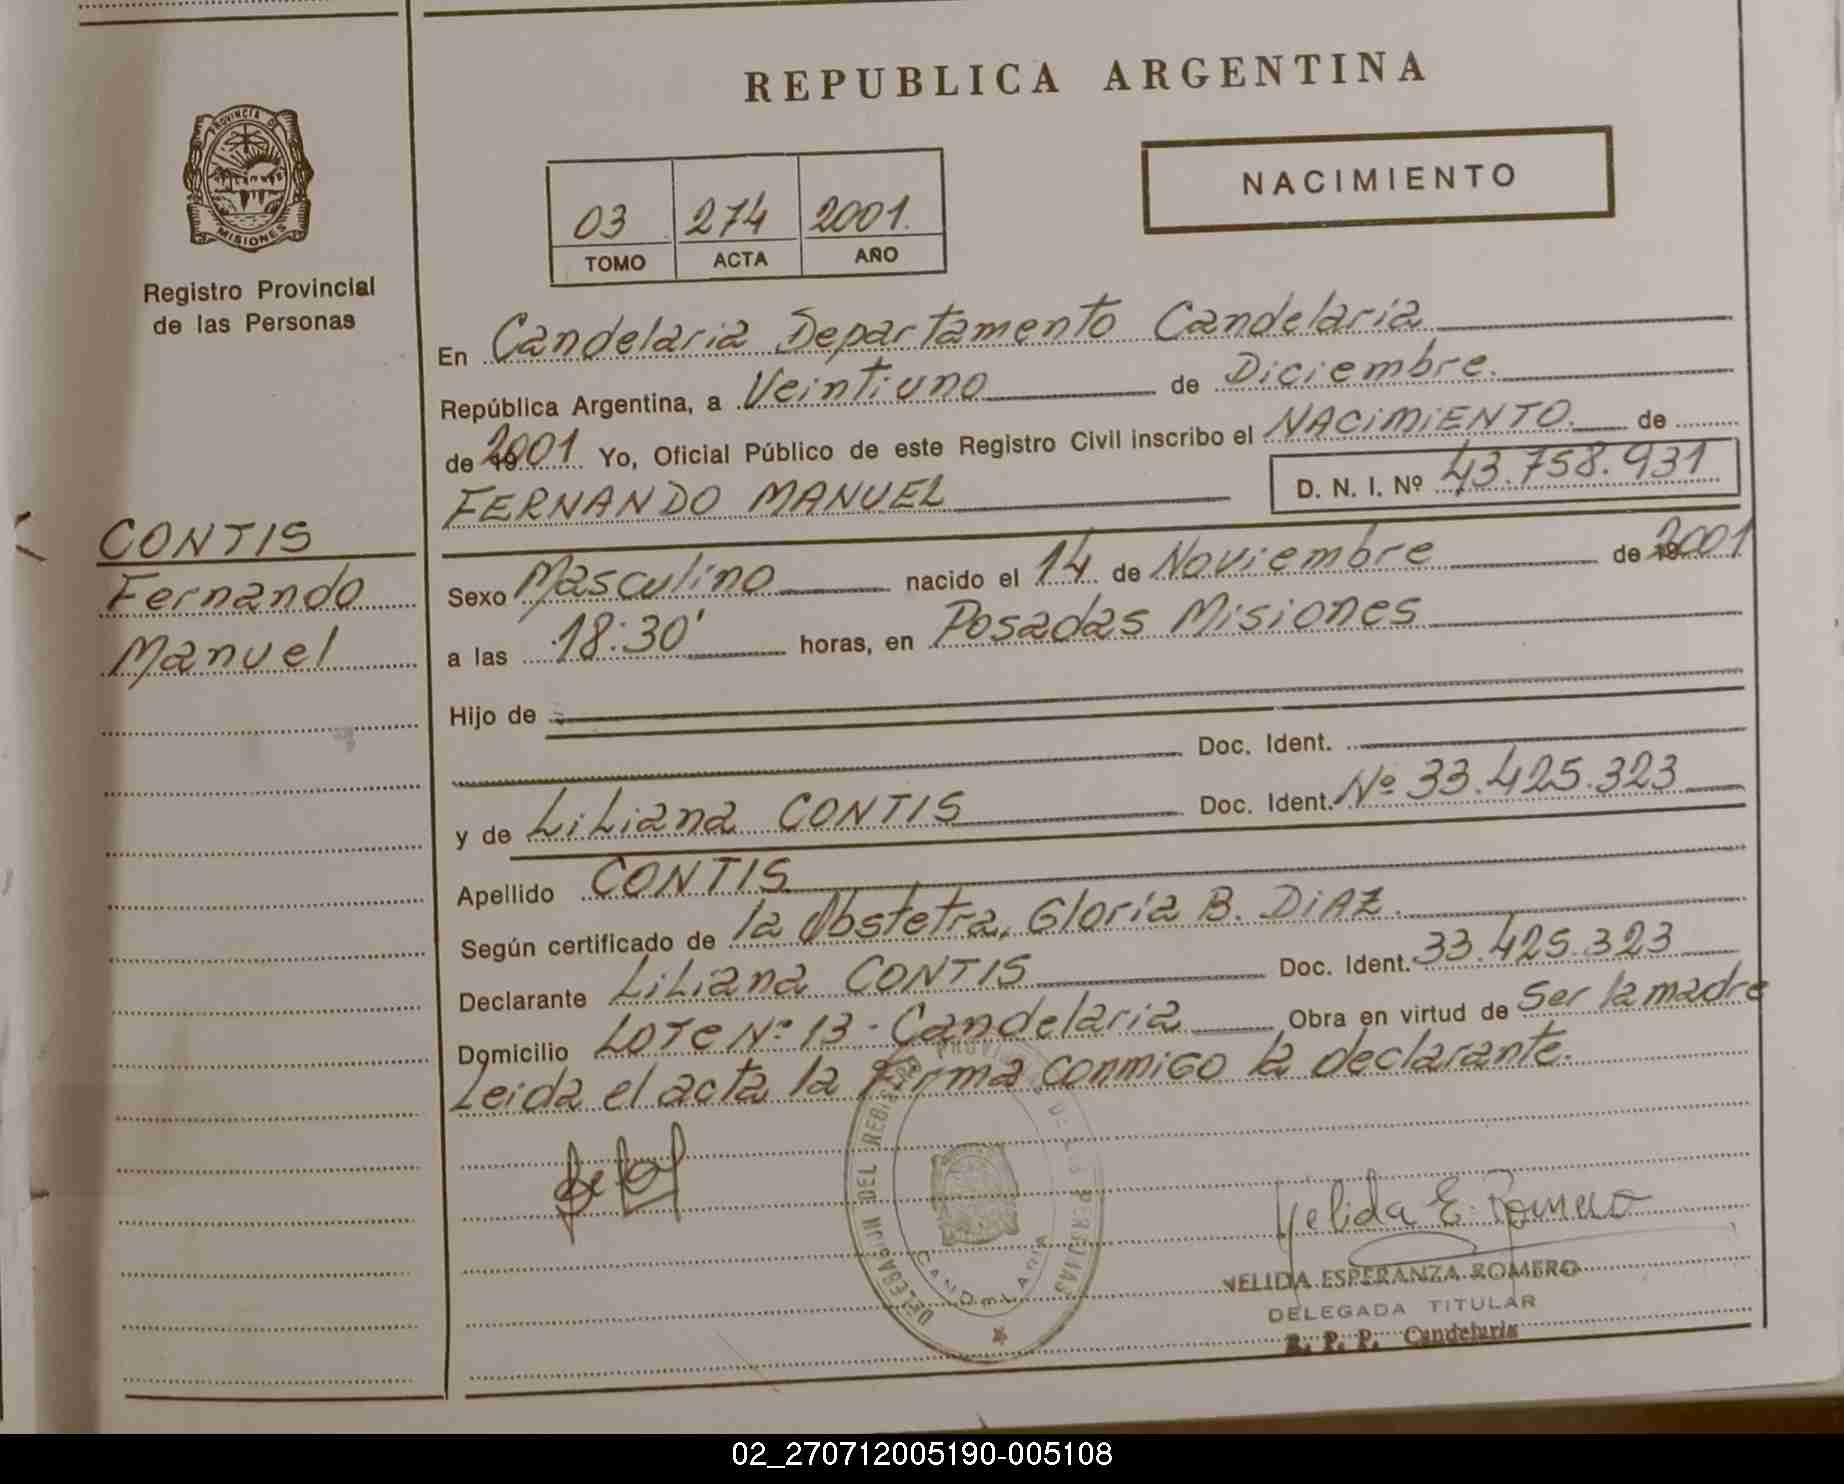 REPUBLICA ARGENTINA
PROVINCIA DE
MISIONES
Registro Provincial
de las Personas
NACIMIENTO
03 274 2001
TOMO ACTA AÑO
En Candelaria Departamento Candelaria
República Argentina, a Veintiuno de Diciembre.
de 2001 Yo, Oficial Público de este Registro Civil inscribo el NACIMIENTO. de
FERNANDO MANUEL D. N. I. Nº 43.758.931
CONTIS
Fernando
Manuel
Sexo Masculino nacido el 14 de Noviembre de 2001
a las 18:30' horas, en Posadas Misiones
Hijo de
Doc. Ident.
y de Liliana CONTIS Doc. Ident. Nº 33.425.323
Apellido CONTIS
Según certificado de la Obstetra, Gloria B. DIAZ.
Declarante Liliana CONTIS Doc. Ident. 33.425.323
Domicilio LOTE Nº 13 - Candelaria Obra en virtud de Ser la madre
Leida el acta la Firma conmigo la declarante.
DELEGACION DEL REGISTRO PROVINCIAL DE LAS PERSONAS
CANDELARIA
Nelida E. Romero
NELIDA ESPERANZA ROMERO
DELEGADA TITULAR
R. P. P. Candelaria
02_270712005190-005108